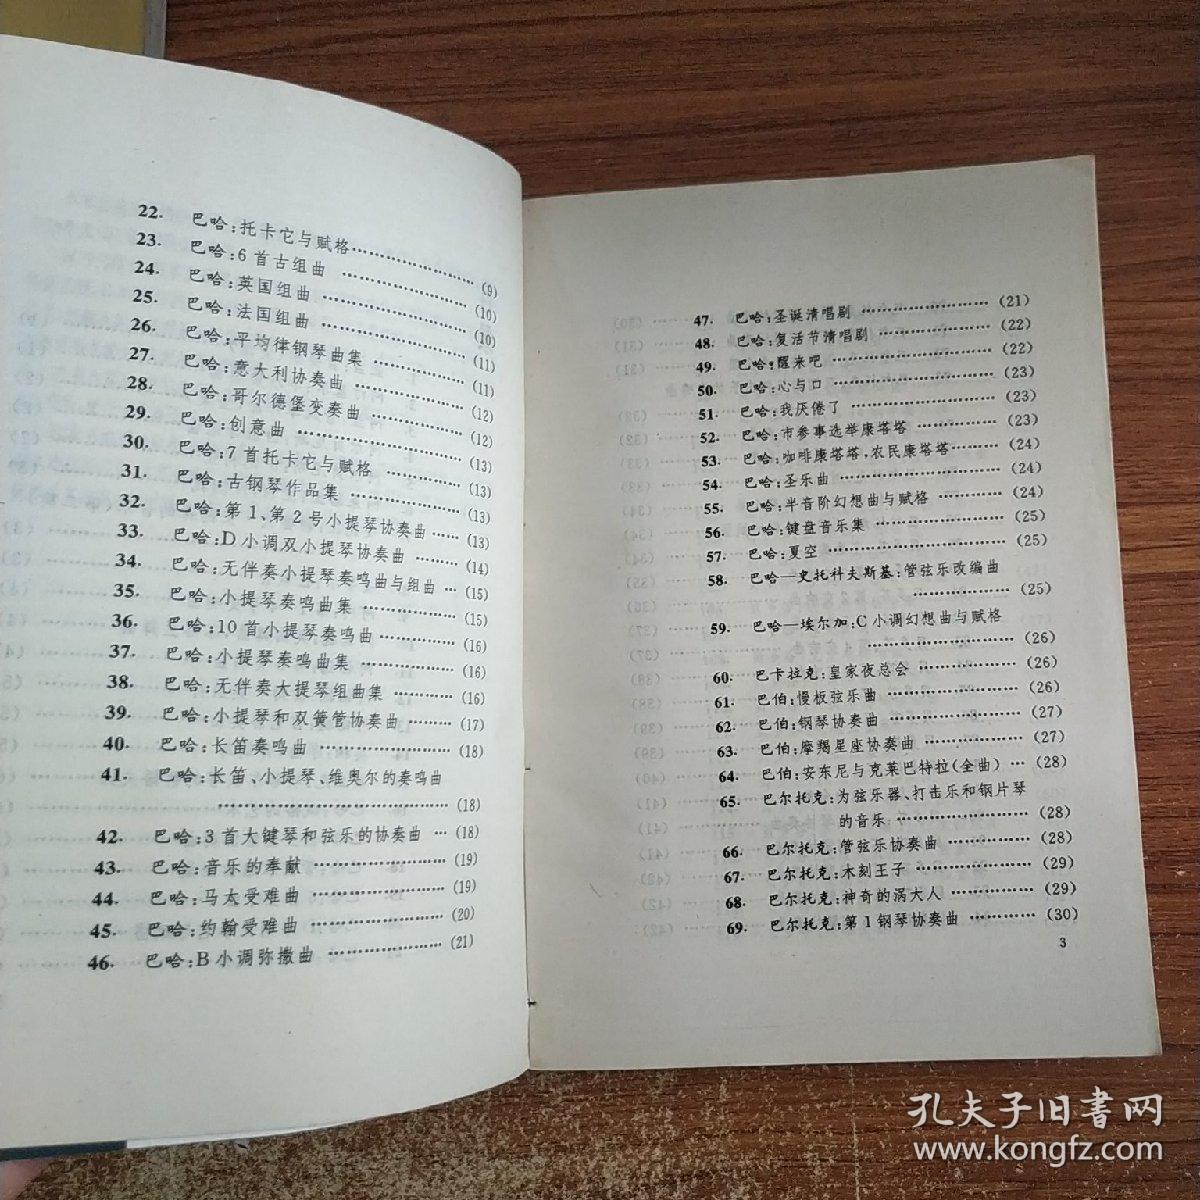 22. 巴哈:托卡它与赋格……………(9)
23. 巴哈:6首古组曲 ……………(10)
24. 巴哈:英国组曲 ……………(10)
25. 巴哈:法国组曲 ……………(10)
26. 巴哈:平均律钢琴曲集 ……………(11)
27. 巴哈:意大利协奏曲 ……………(11)
28. 巴哈:哥尔德堡变奏曲 ……………(12)
29. 巴哈:创意曲 ……………(12)
30. 巴哈:7首托卡它与赋格 ……………(13)
31. 巴哈:古钢琴作品集 ……………(13)
32. 巴哈:第1、第2号小提琴协奏曲 ……(13)
33. 巴哈:D小调双小提琴协奏曲 ………(14)
34. 巴哈:无伴奏小提琴奏鸣曲与组曲 …(15)
35. 巴哈:小提琴奏鸣曲集 ……………(15)
36. 巴哈:10首小提琴奏鸣曲 ……………(16)
37. 巴哈:小提琴奏鸣曲集 ……………(16)
38. 巴哈:无伴奏大提琴组曲集 …………(16)
39. 巴哈:小提琴和双簧管协奏曲 ………(17)
40. 巴哈:长笛奏鸣曲 ……………(18)
41. 巴哈:长笛、小提琴、维奥尔的奏鸣曲
……………………………(18)
42. 巴哈:3首大键琴和弦乐的协奏曲 …(18)
43. 巴哈:音乐的奉献 ……………(19)
44. 巴哈:马太受难曲 ……………(19)
45. 巴哈:约翰受难曲 ……………(20)
46. 巴哈:B小调弥撒曲 ……………(21)
47. 巴哈:圣诞清唱剧 ……………(21)
48. 巴哈:复活节清唱剧 ……………(22)
49. 巴哈:醒来吧 ……………(22)
50. 巴哈:心与口 ……………(23)
51. 巴哈:我厌倦了 ……………(23)
52. 巴哈:市参事选举康塔塔 ……………(23)
53. 巴哈:咖啡康塔塔,农民康塔塔 ………(24)
54. 巴哈:圣乐曲 ……………(24)
55. 巴哈:半音阶幻想曲与赋格 …………(24)
56. 巴哈:键盘音乐集 ……………(25)
57. 巴哈:夏空 ……………(25)
58. 巴哈—史托科夫斯基:管弦乐改编曲
……………(25)
59. 巴哈—埃尔加:C小调幻想曲与赋格
……………(26)
60. 巴卡拉克:皇家夜总会 ……………(26)
61. 巴伯:慢板弦乐曲 ……………(26)
62. 巴伯:钢琴协奏曲 ……………(27)
63. 巴伯:摩羯星座协奏曲 ……………(27)
64. 巴伯:安东尼与克莱巴特拉(全曲) …(28)
65. 巴尔托克:为弦乐器、打击乐和钢片琴
的音乐 ……………(28)
66. 巴尔托克:管弦乐协奏曲 ……………(28)
67. 巴尔托克:木刻王子 ……………(29)
68. 巴尔托克:神奇的满大人 ……………(29)
69. 巴尔托克:第1钢琴协奏曲 …………(30)
3
孔夫子旧書网
www.kongfz.com